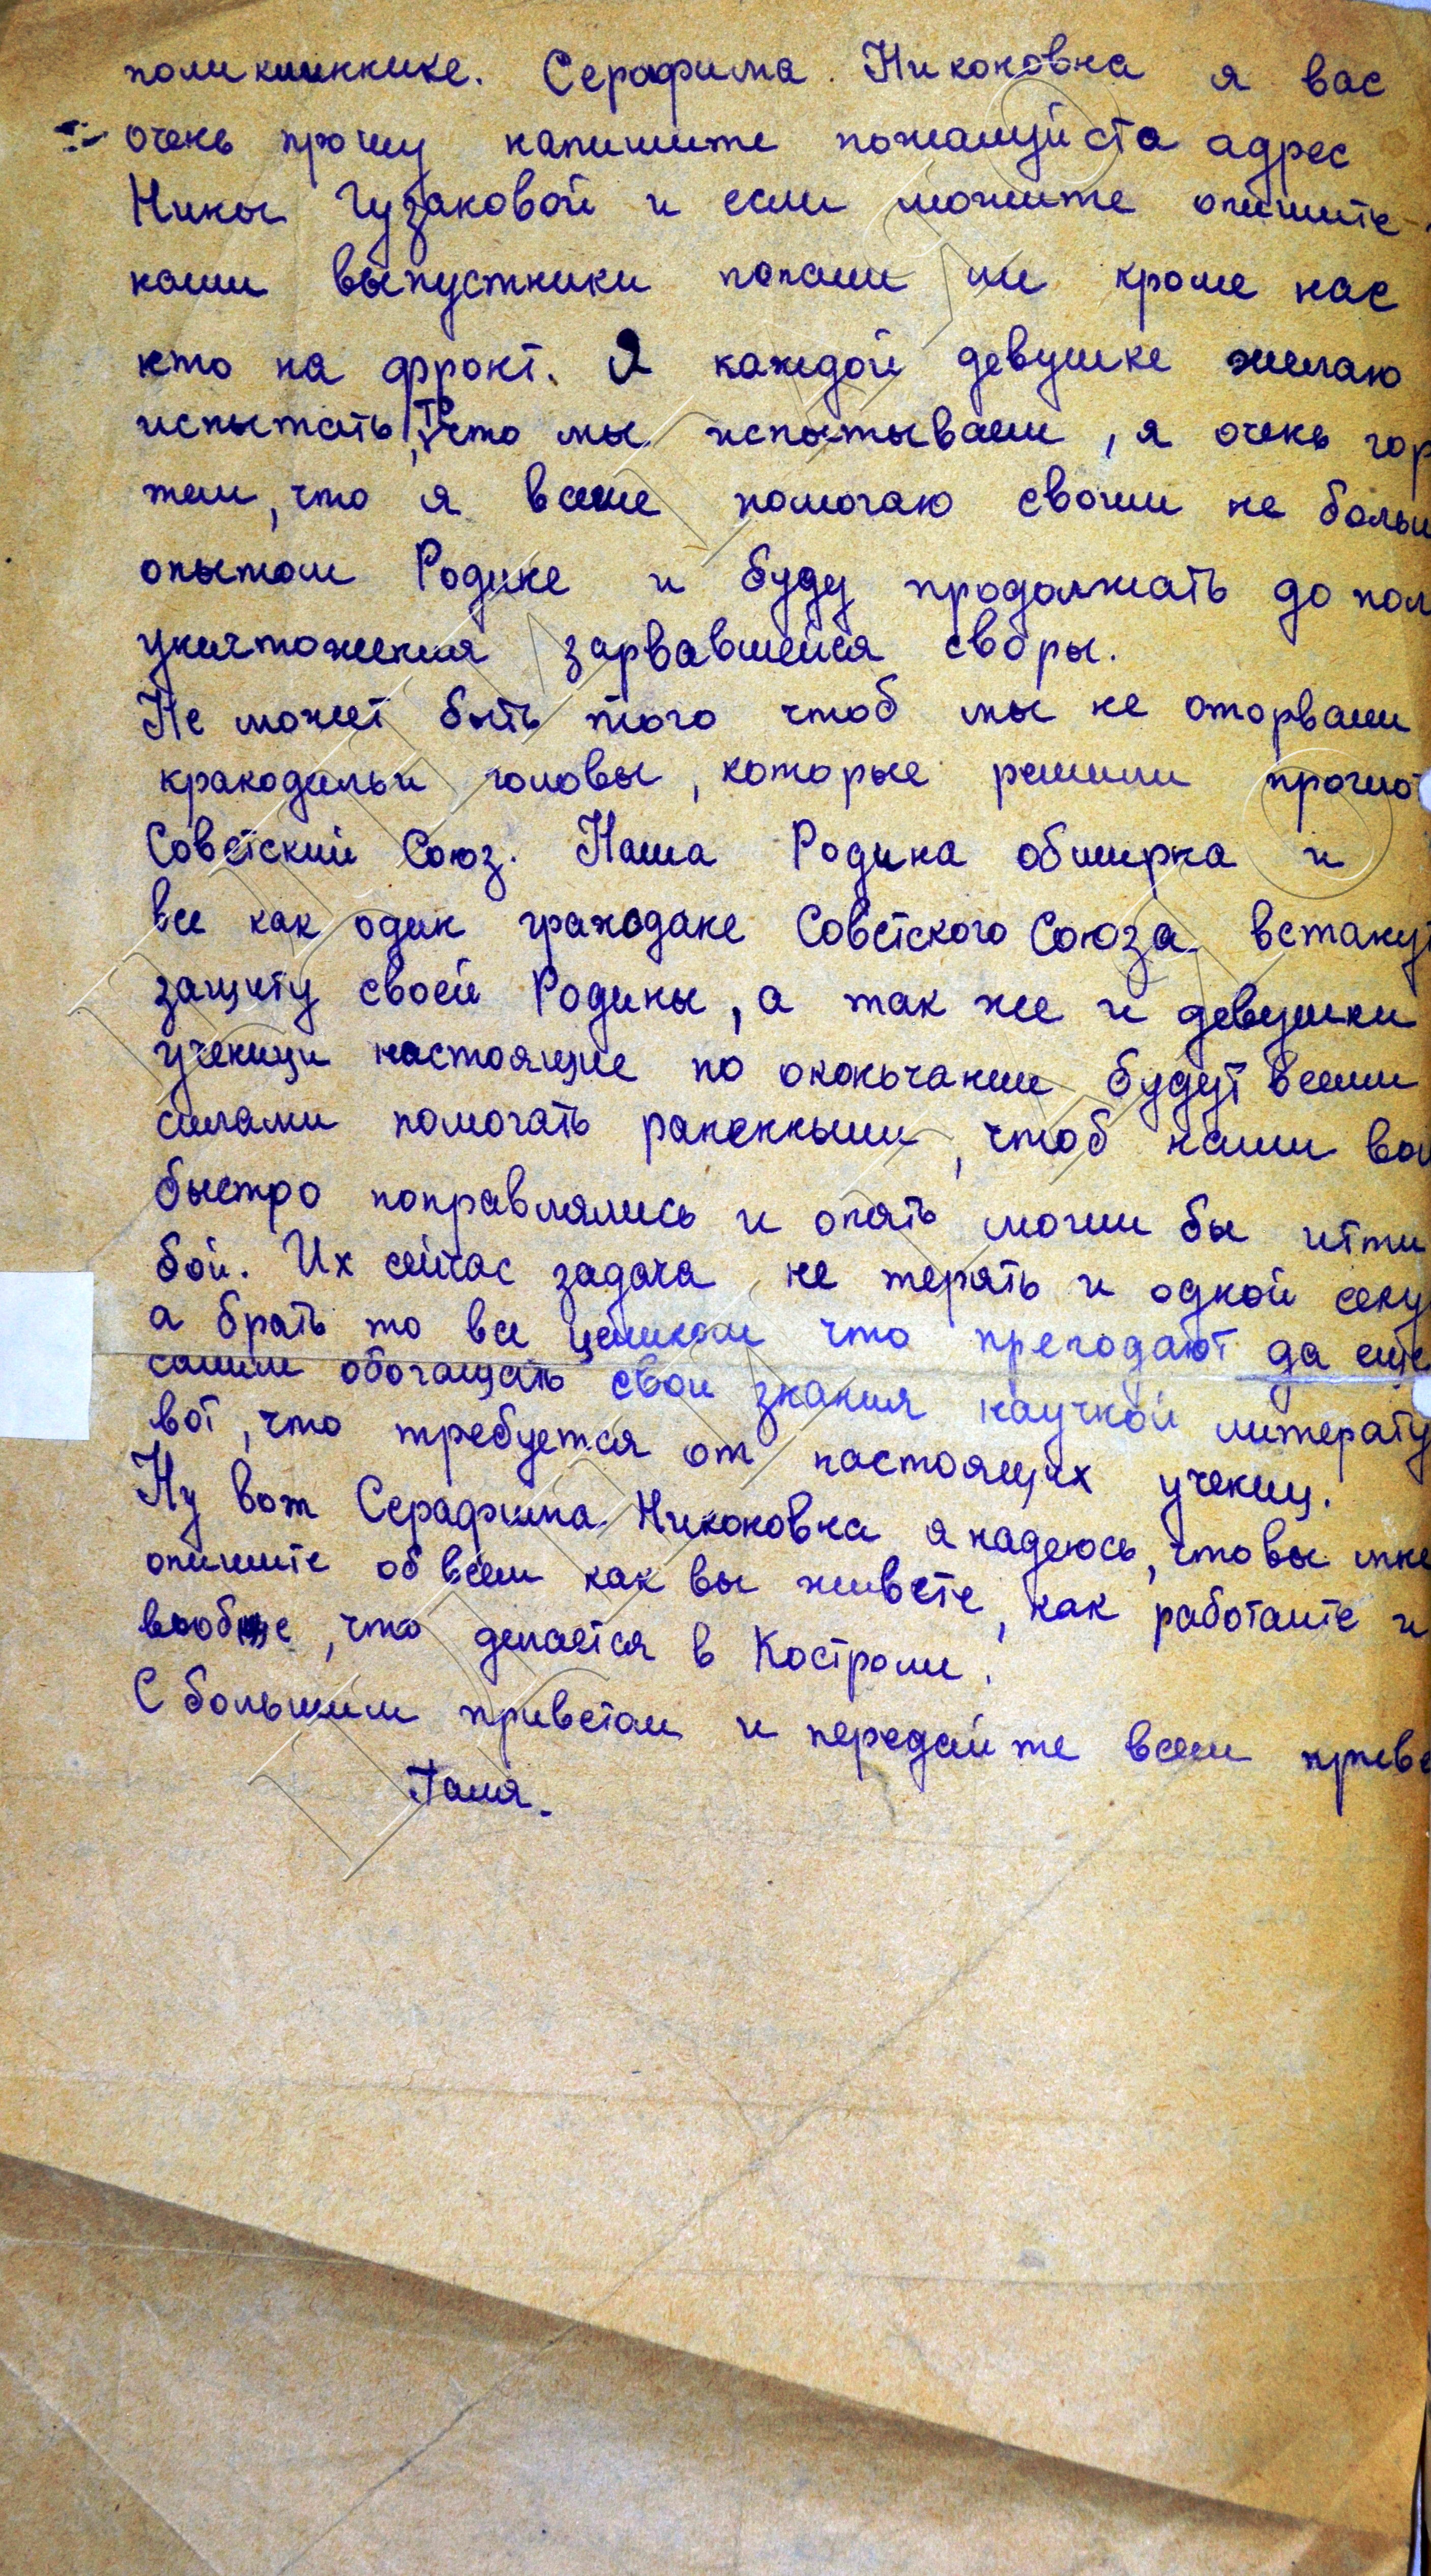 поликлиннике. Серафима Никоновна я вас
очень прошу напишите пожалуйста адрес
Нины Гузаковой и если можите опишите
наши выпустники попали ли кроме нас
кто на фронт. Я каждой девушке желаю
испытать, то что мы испытываем, я очень гор
тем, что я все же помогаю своим не больш
опытом Родине и буду продолжать до пол
уничтожения зарвавшейся своры.
Не может быть того чтоб мы не оторвали
кракодильи головы, которые решили проглот
Советский Союз. Наша Родина обширна и
все как один граждане Советского Союза встанут
защиту своей Родины, а так же и девушки
ученици настоящие по окончании будут всеми
силами помогать раненным, чтоб наши вои
быстро поправлялись и опять могли бы итти
бой. Их сейчас задача не терять и одной секу
а брать то все целиком что преподают да еще
самим обогащать свои знания научной литерату
вот, что требуется от настоящих учениц.
Ну вот Серафима Никоновна я надеюсь, что вы мне
опишите об всем как вы живете, как работаите и
вообще, что делается в Костроми.
С большим приветом и передайте всем приве
Галя.